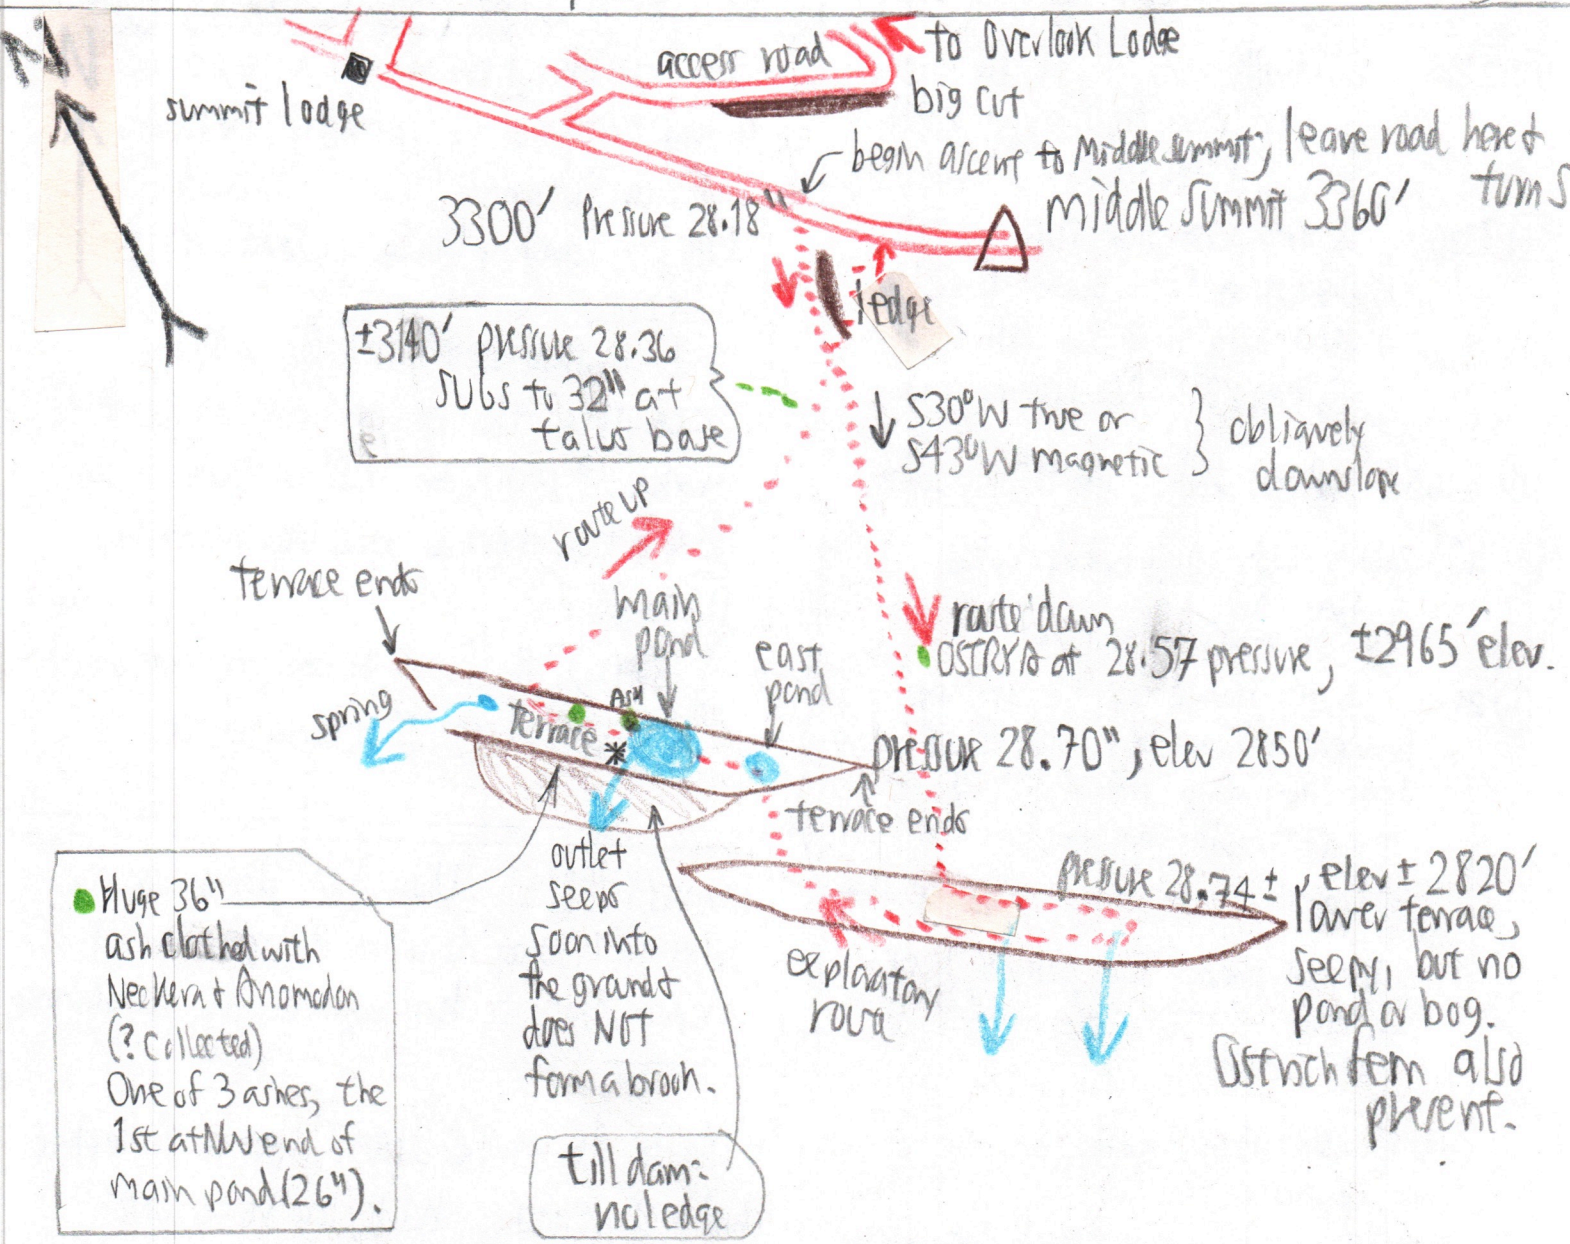 N
access road
to Overlook Lodge
summit lodge
big cut
begin ascent to Middle summit; leave road here &
turn S
3300' Pressure 28.18"
middle summit 3360'
ledge
±3140' pressure 28.36
SUGS to 32" at
talus base
S30°W true or
S43°W magnetic
obliquely
downslope
route up
terrace ends
main
pond
route down
OSTRYA at 28.57 pressure, ±2965' elev.
east
pond
ASH
spring
terrace
*
pressure 28.70", elev 2850'
terrace ends
outlet
seeps
soon into
the ground &
does NOT
form a brook.
pressure 28.74±, elev ± 2820'
lower terrace,
seepy, but no
pond or bog.
Ostrich fern also
present.
exploratory
Huge 36"
ash clothed with
Neckera & Anomodon
(? collected)
One of 3 ashes, the
1st at NW end of
main pond (26").
till dam:
no ledge